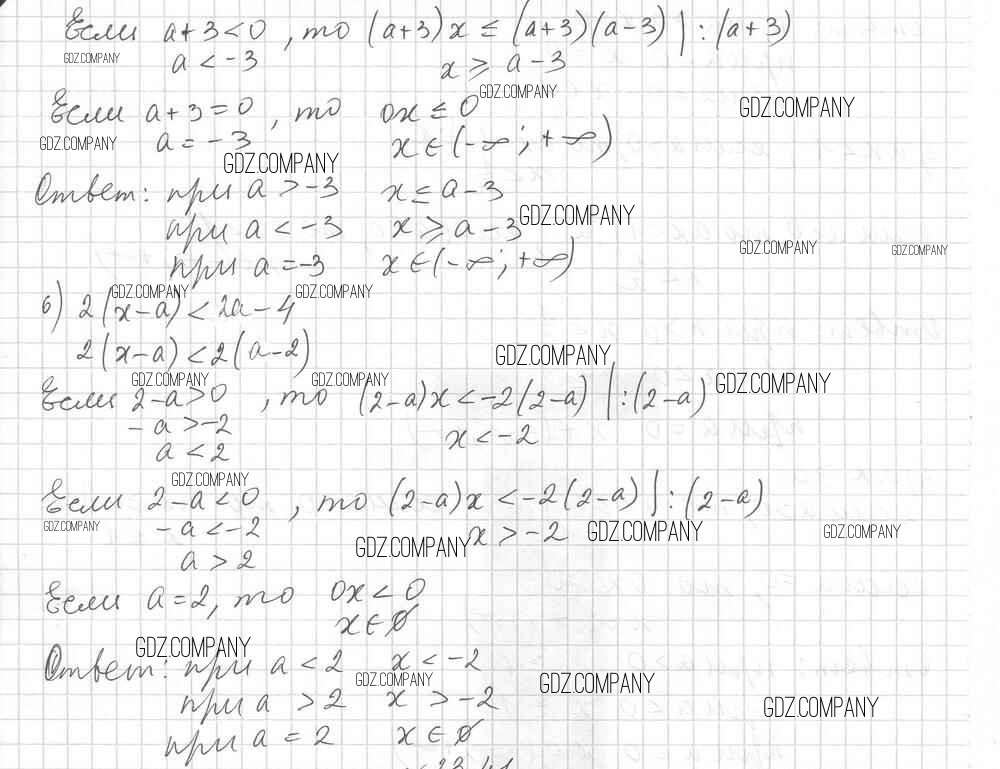 Если a+3<0, то (a+3)x ≤ (a+3)(a-3) | : (a+3)
GDZ.COMPANY a < -3 x ⩾ a-3
Если a+3=0, то 0x ≤ 0 GDZ.COMPANY GDZ.COMPANY
GDZ.COMPANY a = -3 x ∈ (-∞; +∞)
GDZ.COMPANY
Ответ: при a > -3 x ≤ a-3
при a < -3 x ⩾ a-3 GDZ.COMPANY
GDZ.COMPANY GDZ.COMPANY
при a = -3 x ∈ (-∞; +∞)
GDZ.COMPANY GDZ.COMPANY
б) 2(x-a) < 2a-4
2(x-a) < 2(a-2) GDZ.COMPANY
GDZ.COMPANY GDZ.COMPANY GDZ.COMPANY
Если 2-a>0, то (2-a)x < -2(2-a) | : (2-a)
-a > -2 x < -2
a < 2
GDZ.COMPANY
Если 2-a<0, то (2-a)x < -2(2-a) | : (2-a)
GDZ.COMPANY -a < -2 x > -2 GDZ.COMPANY GDZ.COMPANY
GDZ.COMPANY
a > 2
Если a = 2, то 0x < 0
x ∈ ∅
GDZ.COMPANY
Ответ: при a < 2 x < -2
GDZ.COMPANY GDZ.COMPANY
при a > 2 x > -2
GDZ.COMPANY
при a = 2 x ∈ ∅